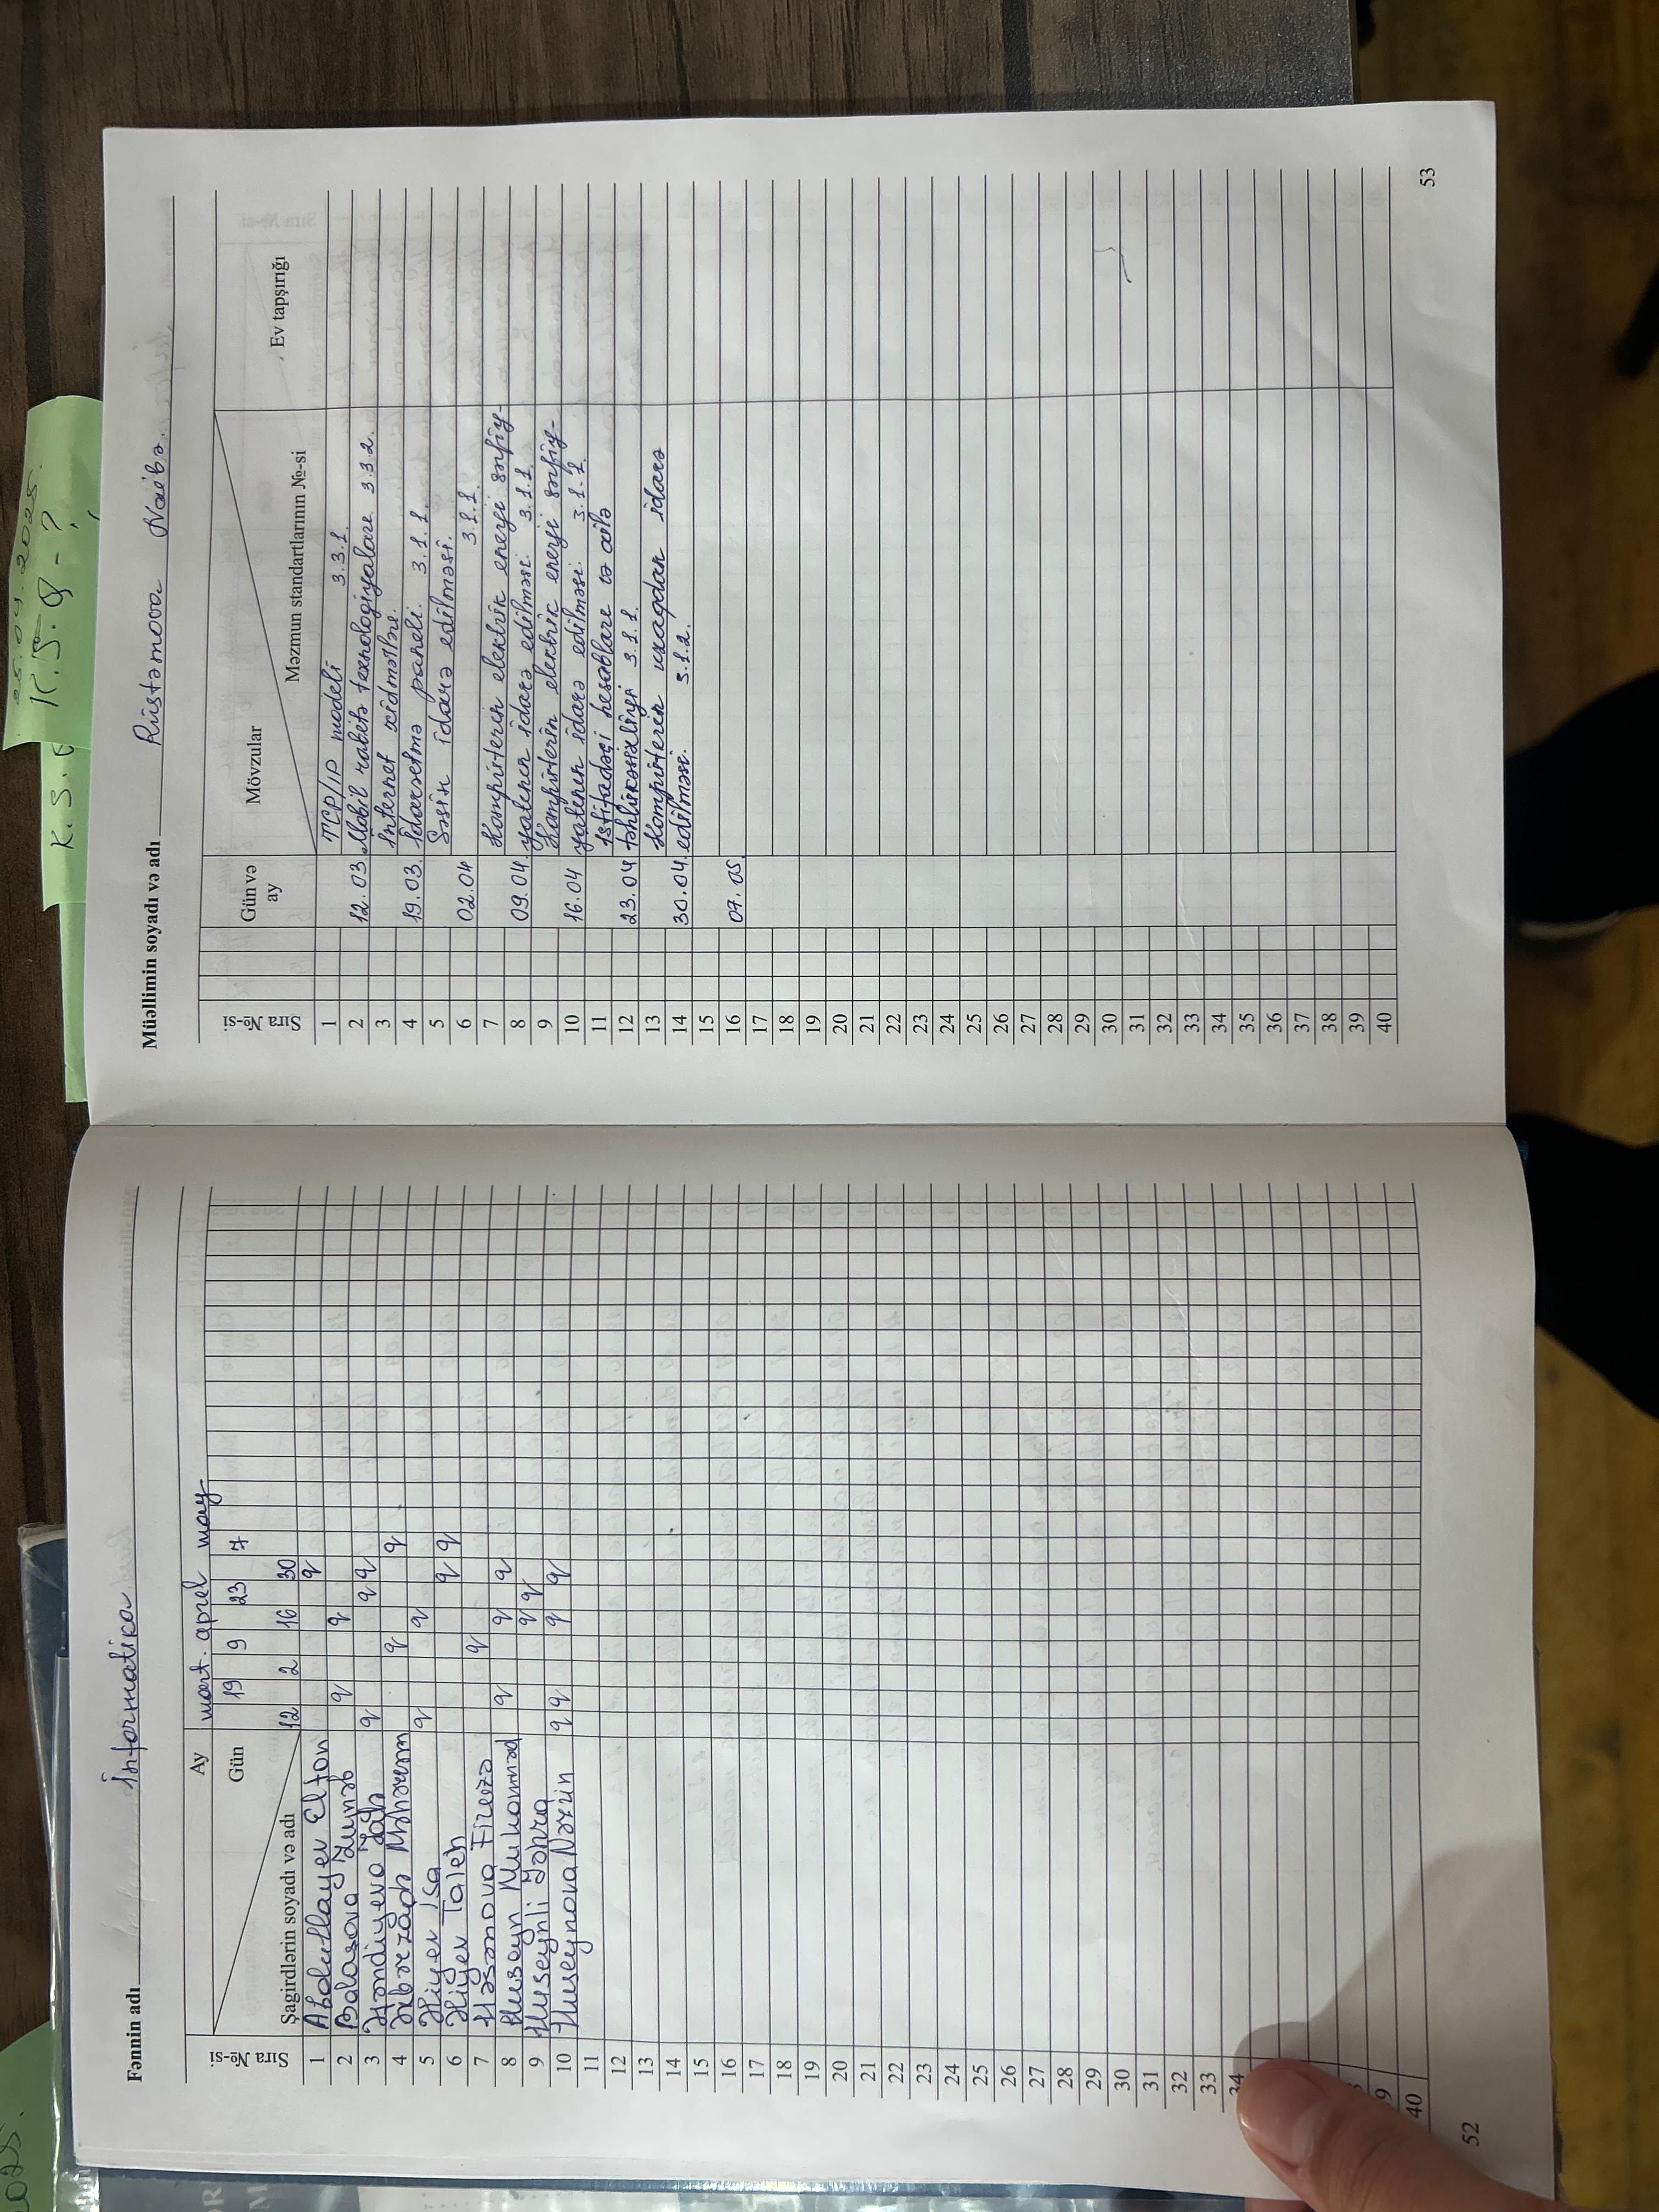 2025.
25.04.2025.
K. S. Q
K. S. Q - ?
Fənnin adı İnformatika
Sıra №-si
Ay mart. aprel may
Gün 19 9 23 7
Şagirdlərin soyadı və adı 12 2 16 30
1 Abdullayev Elton q
2 Balaşova Zeynəb q q
3 q q q
4 Əkbərzadə Məhərrəm q q
5 Əliyev İsa q q
6 Əliyev Taleh q q
7 Həsənova Firuzə q
8 Huseyn Muhəmməd q q q
9 Huseynli Zəhra q q
10 Huseynova Nəzrin q q q q
11
12
13
14
15
16
17
18
19
20
21
22
23
24
25
26
27
28
29
30
31
32
33
34
9
40
52
Müəllimin soyadı və adı Rüstəmova Naibə.
Sıra №-si
Gün və ay
Mövzular
Məzmun standartlarının №-si
Ev tapşırığı
1 TCP/IP modeli 3.3.1.
2 12.03 Mobil rabitə texnologiyaları. 3.3.2.
3 İnternet xidmətləri.
4 19.03. İdarəetmə paneli. 3.1.1.
5 Səsin idarə edilməsi.
6 02.04 3.1.1.
7 Kompüterin elektrik enerji sərfiy-
8 09.04. yatının idarə edilməsi. 3.1.1.
9 Kompüterin elektrik enerji sərfiy-
10 16.04 yatının idarə edilməsi. 3.1.1.
11 İstifadəçi hesabları və ailə
12 23.04 təhlükəsizliyi 3.1.1.
13 Kompüterin uzaqdan idarə
14 30.04. edilməsi. 3.1.2.
15
16 07.05.
17
18
19
20
21
22
23
24
25
26
27
28
29
30
31
32
33
34
35
36
37
38
39
40
53